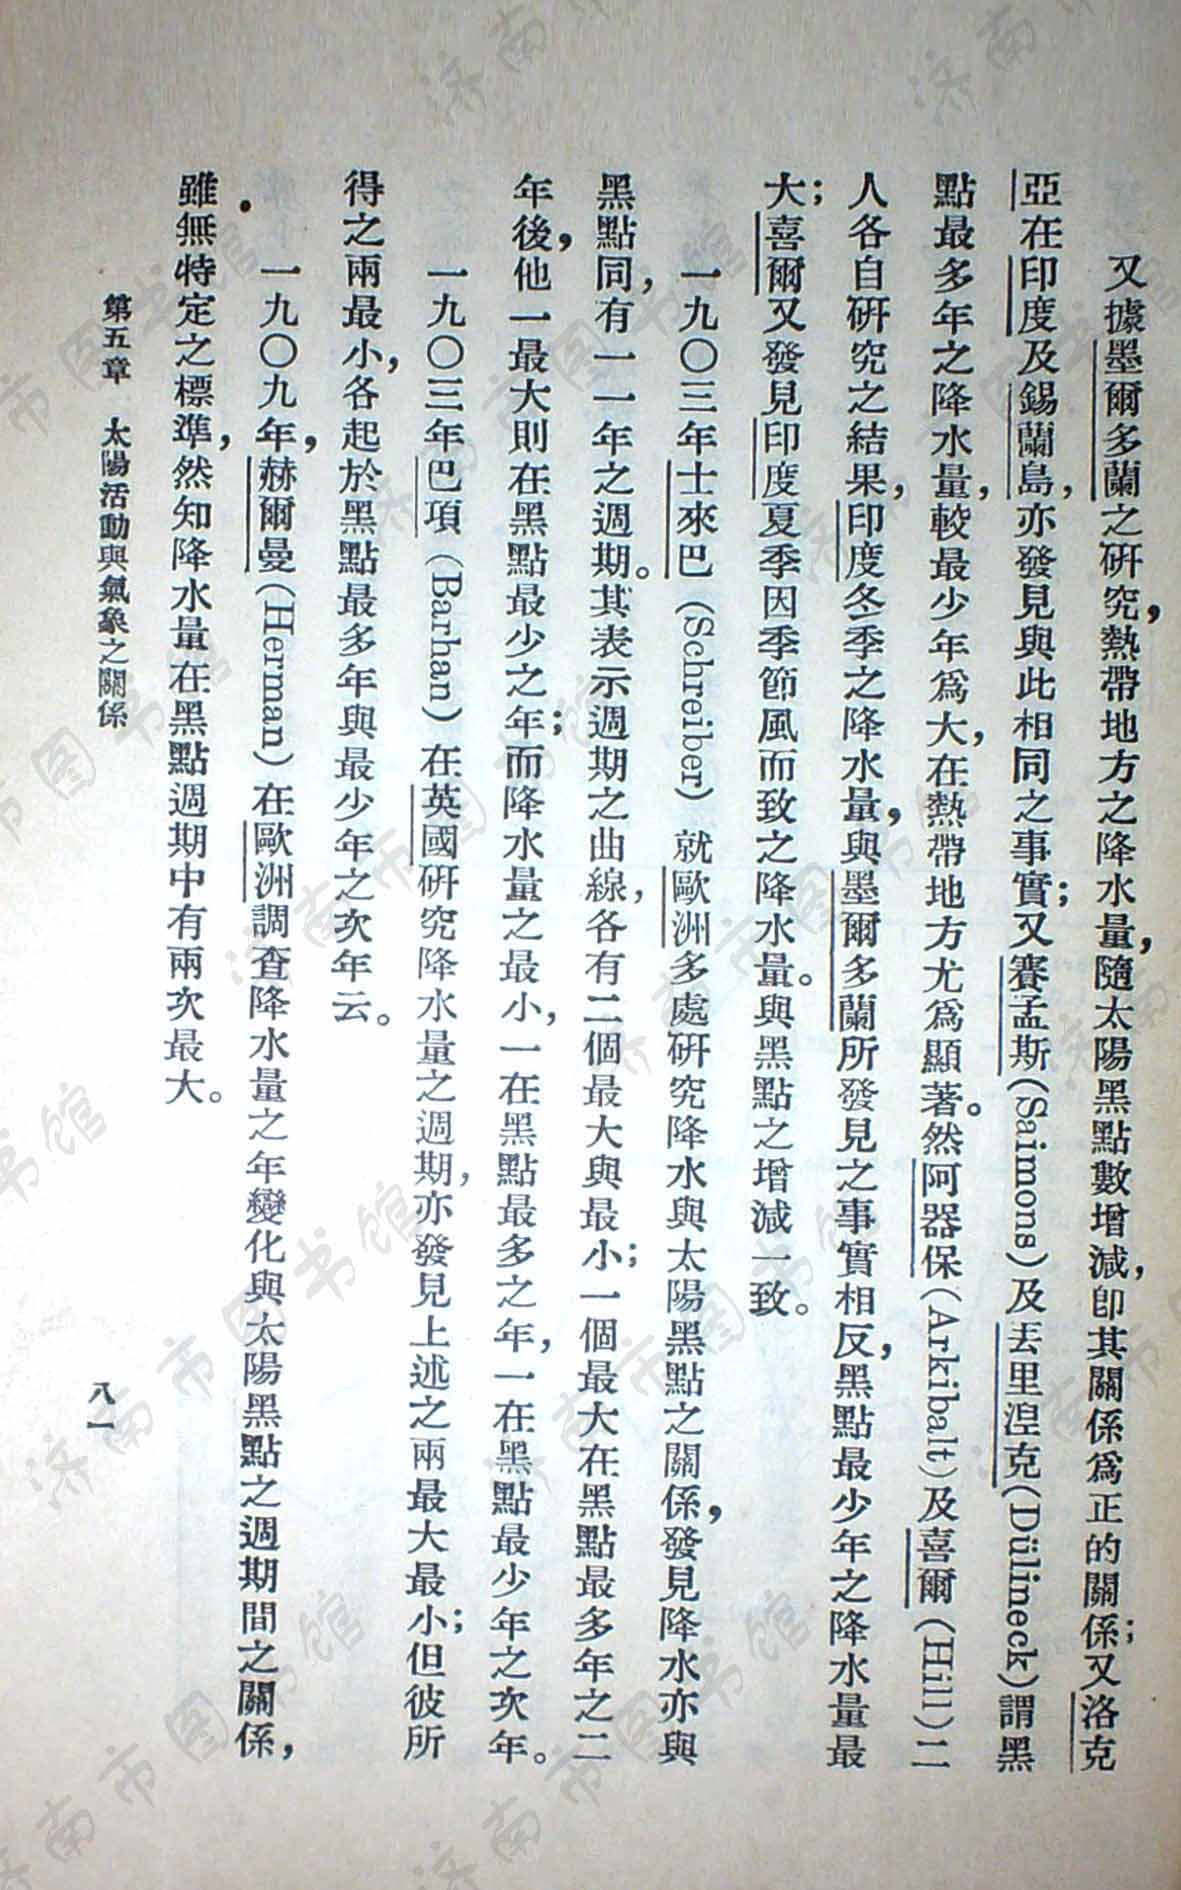 又據墨爾多蘭之研究，熱帶地方之降水量，隨太陽黑點數增減，卽其關係爲正的關係；又洛克
亞在印度及錫蘭島，亦發見與此相同之事實；又賽孟斯(Saimons)及丟里涅克(Dülineck)謂黑
點最多年之降水量，較最少年爲大，在熱帶地方尤爲顯著。然阿器保(Arkibalt)及喜爾(Hill)二
人各自研究之結果，印度冬季之降水量，與墨爾多蘭所發見之事實相反，黑點最少年之降水量最
大；喜爾又發見印度夏季因季節風而致之降水量。與黑點之增減一致。
一九〇三年士來巴(Schreiber)就歐洲多處研究降水與太陽黑點之關係，發見降水亦與
黑點同，有一一年之週期。其表示週期之曲線，各有二個最大與最小；一個最大在黑點最多年之二
年後，他一最大則在黑點最少之年；而降水量之最小，一在黑點最多之年，一在黑點最少年之次年。
一九〇三年巴項(Barhan)在英國研究降水量之週期，亦發見上述之兩最大最小；但彼所
得之兩最小，各起於黑點最多年與最少年之次年云。
一九〇九年，赫爾曼(Herman)在歐洲調查降水量之年變化與太陽黑點之週期間之關係，
雖無特定之標準，然知降水量在黑點週期中有兩次最大。
第五章　太陽活動與氣象之關係
八一
济南市图书馆